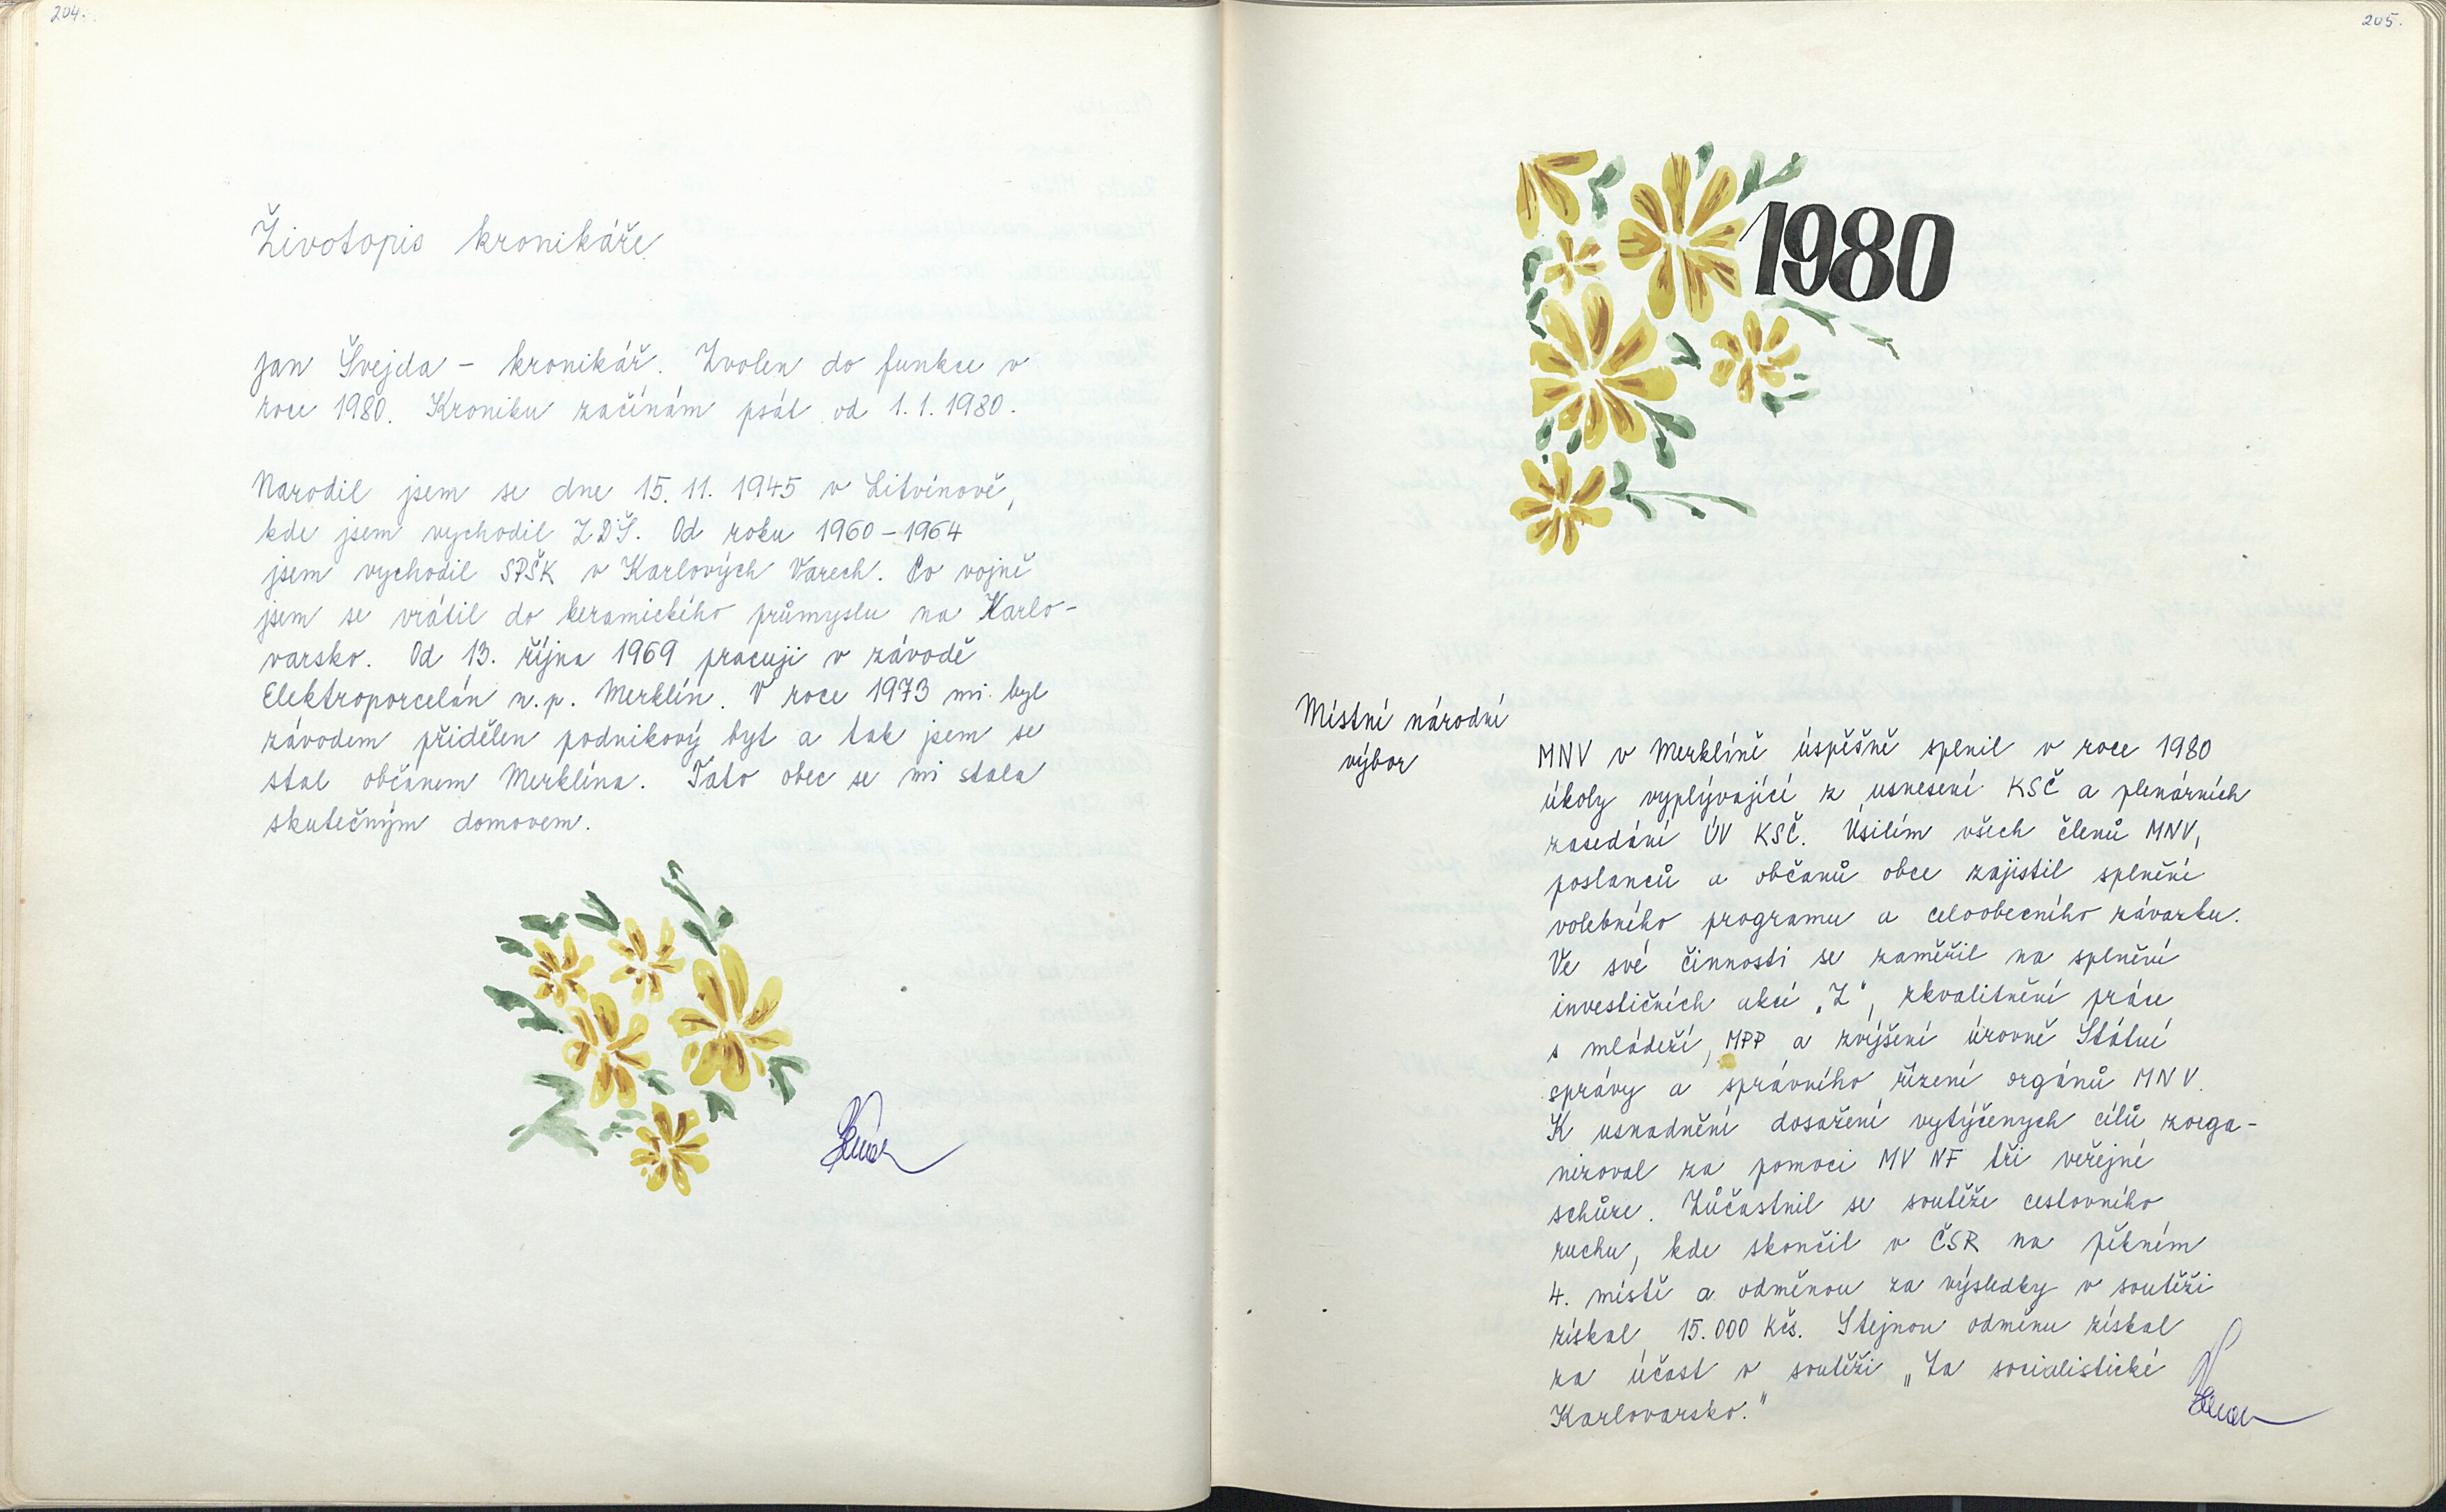 204.
Životopis kronikáře
Jan Švejda - kronikář. Zvolen do funkce v
roce 1980. Kroniku začínám psát od 1.1.1980.
Narodil jsem se dne 15.11.1945 v Litvínově,
kde jsem vychodil ZDŠ. Od roku 1960-1964
jsem vychodil SPŠK v Karlových Varech. Po vojně
jsem se vrátil do keramického průmyslu na Karlo-
varsko. Od 13. října 1969 pracuji v závodě
Elektroporcelán n.p. Merklín. V roce 1973 mi byl
závodem přidělen podnikový byt a tak jsem se
stal občanem Merklína. Tato obec se mi stala
skutečným domovem.
205.
1980
Místní národní
výbor
MNV v Merklíně úspěšně splnil v roce 1980
úkoly vyplývající z usnesení KSČ a plenárních
zasedání ÚV KSČ. Úsilím všech členů MNV,
poslanců a občanů obce zajistil splnění
volebního programu a celoobecního závazku.
Ve své činnosti se zaměřil na splnění
investičních akcí „Z", zkvalitnění práce
s mládeží, MPP a zvýšení úrovně Státní
správy a správního řízení orgánů MNV.
K usnadnění dosažení vytýčenych cílů zorga-
nizoval za pomoci MV NF tři veřejné
schůze. Zůčastnil se soutěže cestovního
ruchu, kde skončil v ČSR na pěkném
4. místě a odměnou za výsledky v soutěži
získal 15.000 Kčs. Stejnou odměnu získal
za účast v soutěži „Za socialistické
Karlovarsko."